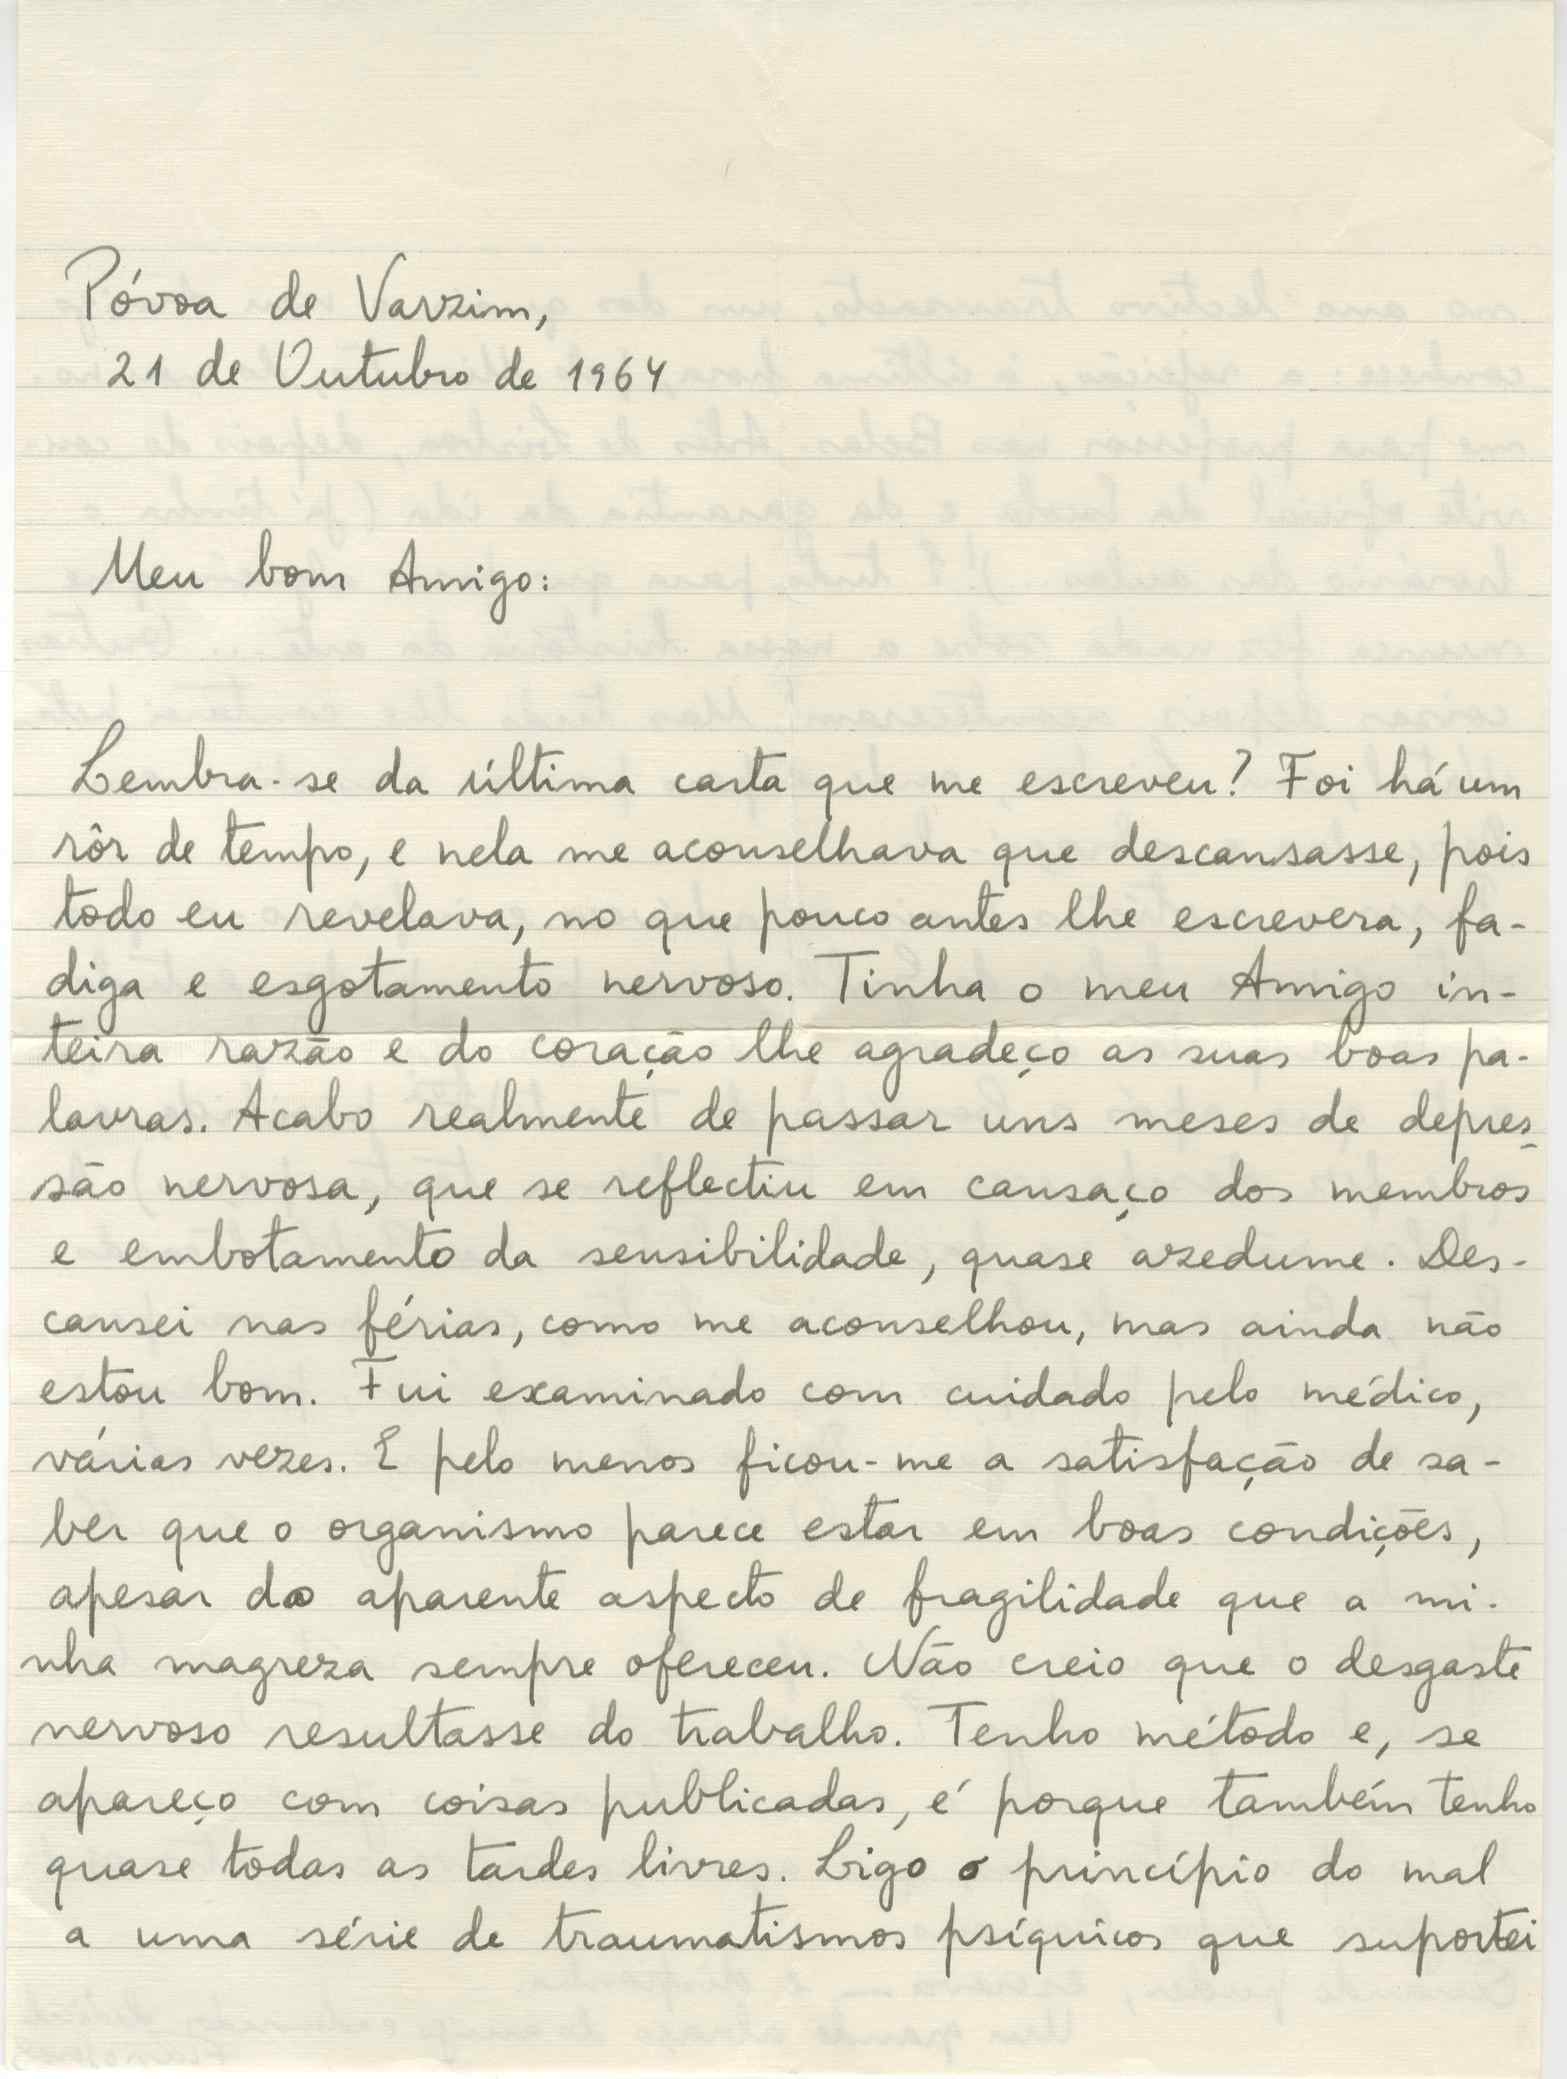 Póvoa de Varzim,
21 de Outubro de 1964
Meu bom Amigo:
Lembra-se da última carta que me escreveu? Foi há um
rôr de tempo, e nela me aconselhava que descansasse, pois
todo eu revelava, no que pouco antes lhe escrevera, fa-
diga e esgotamento nervoso. Tinha o meu Amigo in-
teira razão e do coração lhe agradeço as suas boas pa-
lavras. Acabo realmente de passar uns meses de depres-
são nervosa, que se reflectiu em cansaço dos membros
e embotamento da sensibilidade, quase azedume. Des-
cansei nas férias, como me aconselhou, mas ainda não
estou bom. Fui examinado com cuidado pelo médico,
várias vezes. E pelo menos ficou-me a satisfação de sa-
ber que o organismo parece estar em boas condições,
apesar do aparente aspecto de fragilidade que a mi-
nha magreza sempre ofereceu. Não creio que o desgaste
nervoso resultasse do trabalho. Tenho método e, se
apareço com coisas publicadas, é porque também tenho
quase todas as tardes livres. Ligo o princípio do mal
a uma série de traumatismos psíquicos que suportei